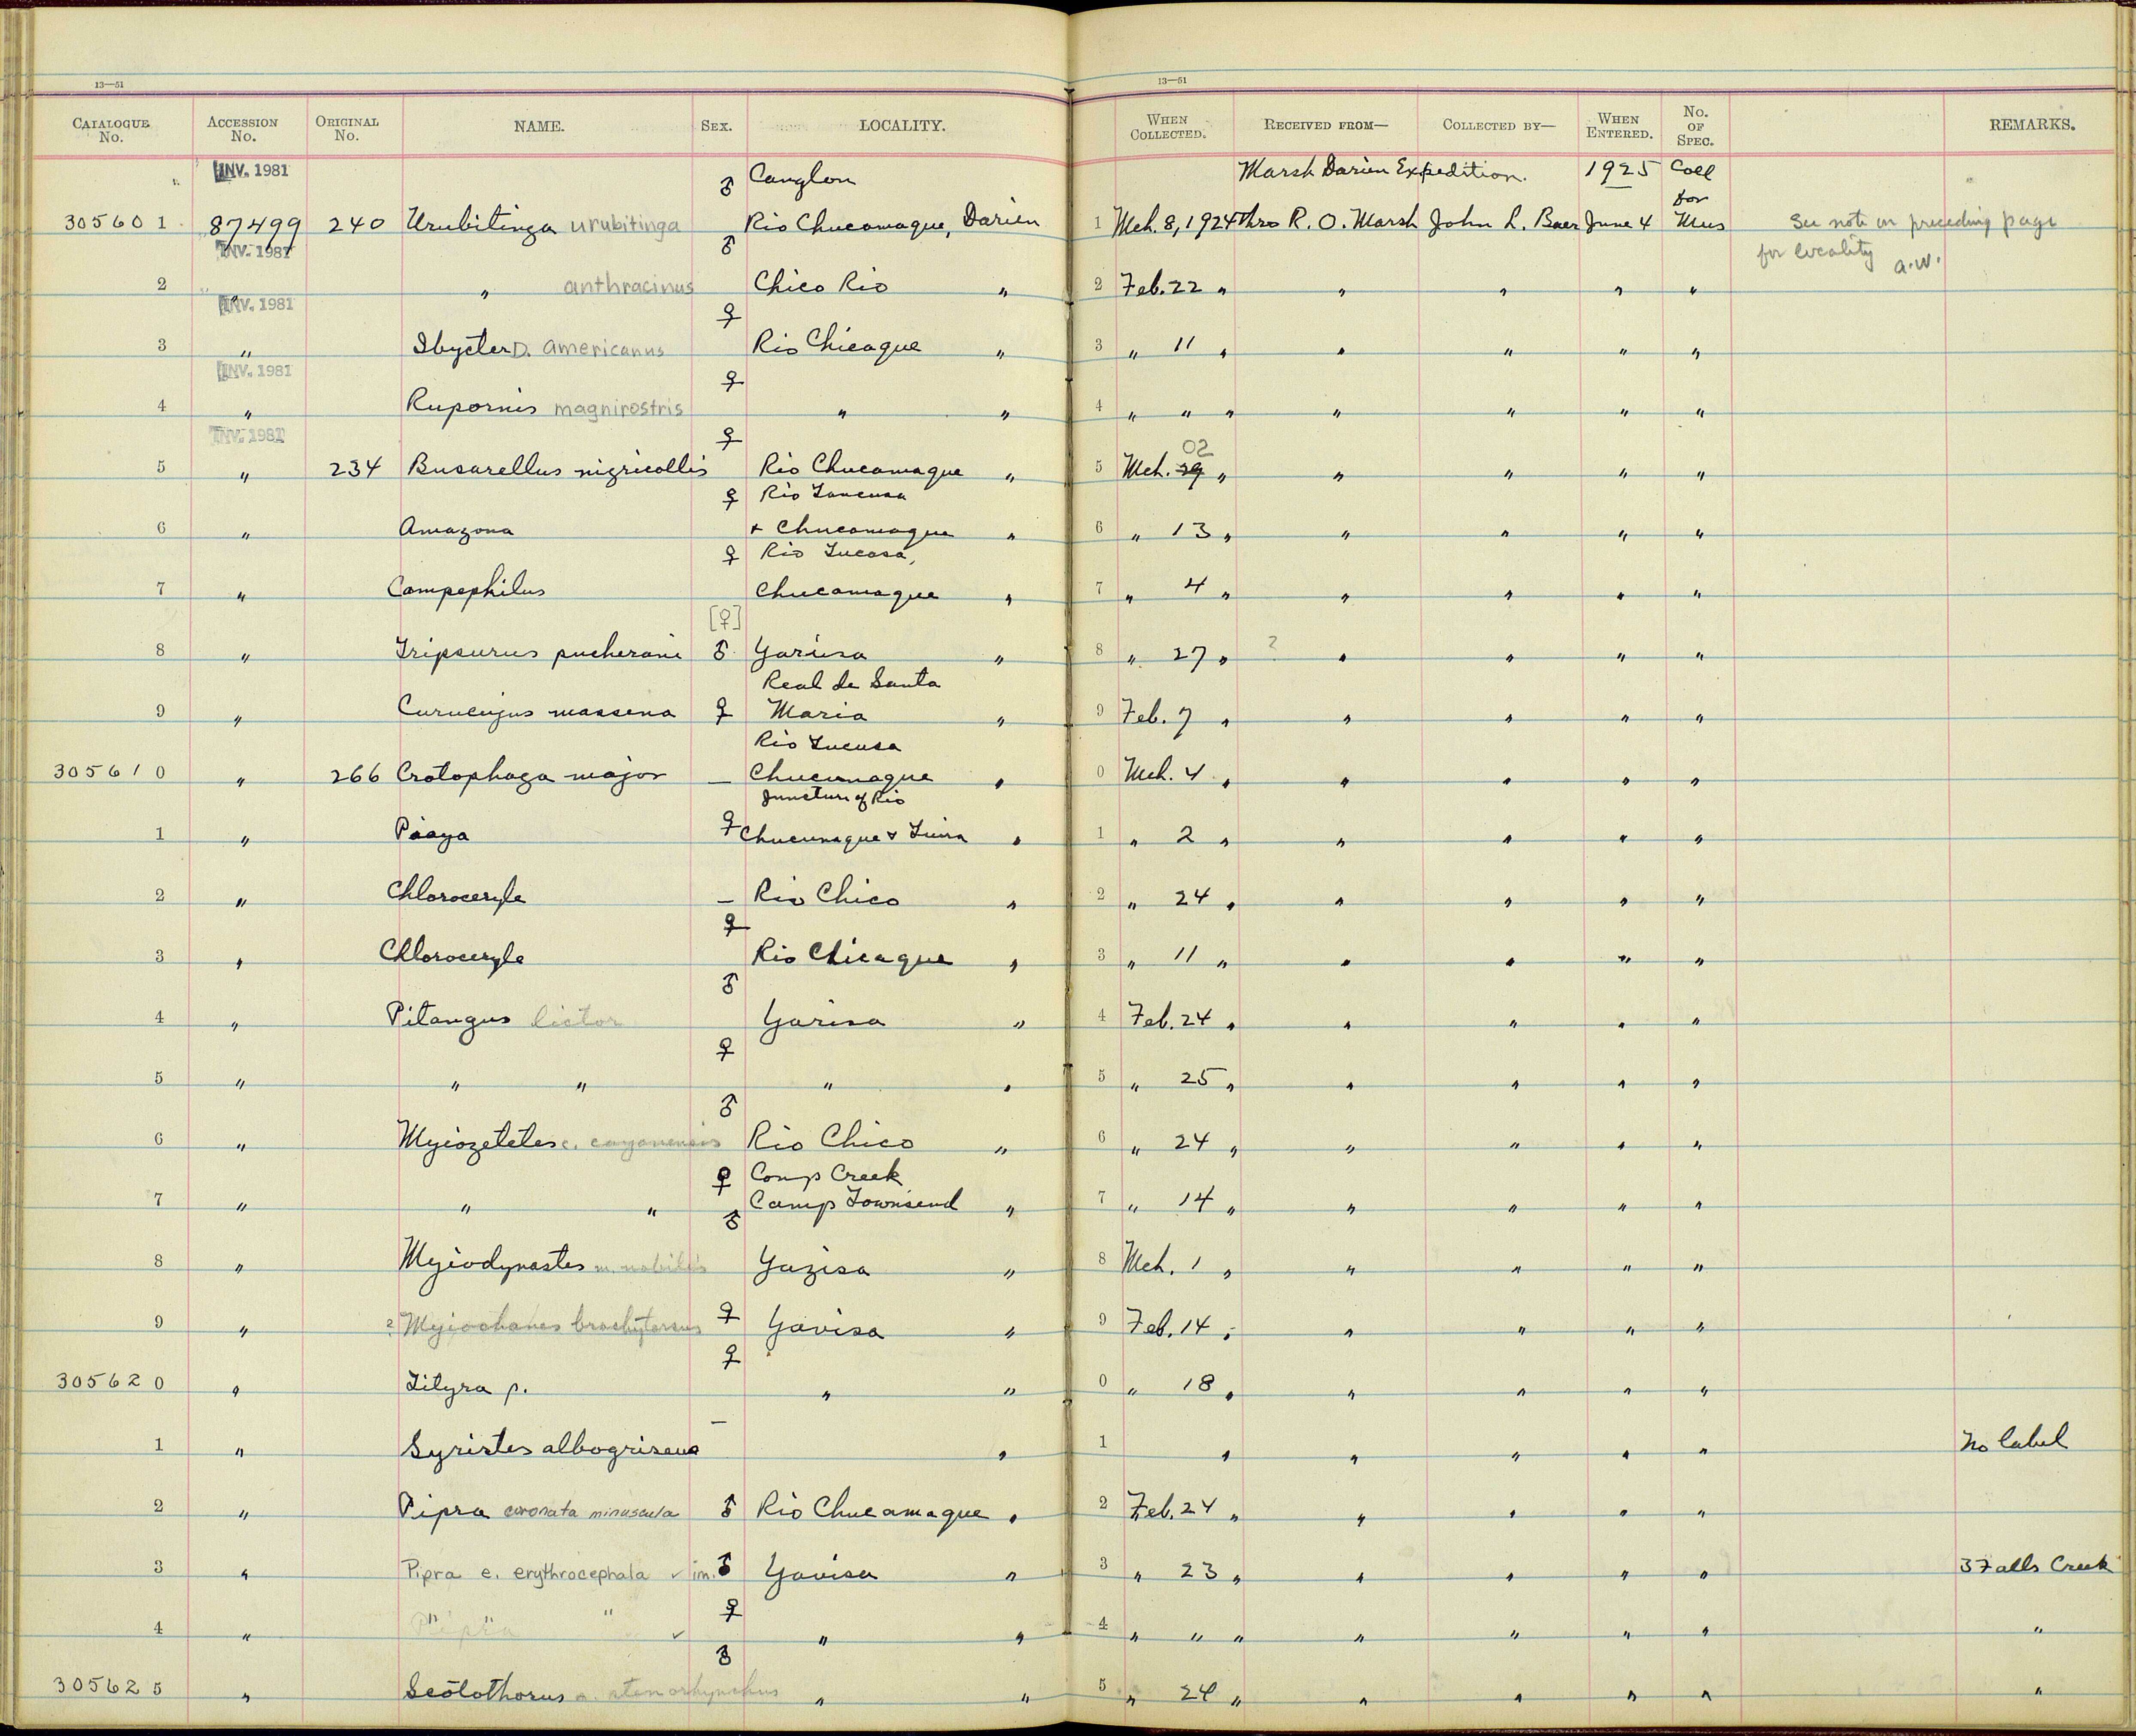 13—51
13—51
CATALOGUE No. ACCESSION No. ORIGINAL No. NAME. SEX. LOCALITY. WHEN COLLECTED. RECEIVED FROM— COLLECTED BY— WHEN ENTERED. No. OF SPEC. REMARKS.
INV. 1981 ♂ Canglon Marsh Darien Expedition. 1925 Coll for
305601 87499 240 Urubitinga urubitinga Rio Chucamaque, Darien 1 Mch. 8, 1924 thro R. O. Marsh John L. Baer June 4 Mus See note on preceding page
INV. 1981 ♂ for locality a.w.
2 " " anthracinus Chico Rio " 2 Feb. 22 " " " " "
INV. 1981 ♀
3 " Ibycter D. americanus Rio Chicaque " 3 " 11 " " " " "
INV. 1981 ♀
4 " Rupornis magnirostris " " 4 " " " " " " "
INV. 1981 ♀ 02
5 " 234 Busarellus nigricollis Rio Chucamaque " 5 Mch. 29 " " " " "
♀ Rio
6 " Amazona + Chucamaque " 6 " 13 " " " " "
♀ Rio Tucasa,
7 " Campephilus Chucamaque " 7 " 4 " " " " "
[♀]
8 " Tripsurus pucherani ♂ Yarisa " 8 " 27 " ? " " " "
Real de Santa
9 " Curucujus massena ♀ Maria " 9 Feb. 7 " " " " "
Rio Tucusa
305610 " 266 Crotophaga major — Chucunaque " 0 Mch. 4 " " " " "
Juncture of Rio
1 " Piaya ♀ Chucunaque & Tuira " 1 " 2 " " " " "
2 " Chloroceryle — Rio Chico " 2 " 24 " " " " "
♀
3 " Chloroceryle Rio Chicaque " 3 " 11 " " " " "
♂
4 " Pitangus lictor Yarisa " 4 Feb. 24 " " " " "
♀
5 " " " " " 5 " 25 " " " " "
♂
6 " Myiozetetes c. cayanensis Rio Chico " 6 " 24 " " " " "
♀ Comp Creek
7 " " " Camp Townsend " 7 " 14 " " " " "
♂
8 " Myiodynastes m. nobilis Yazisa " 8 Mch. 1 " " " " "
9 " ? Myiochanes brachytarsus ♀ Yavisa " 9 Feb. 14 " " " " "
♀
305620 " Tityra p. " " 0 " 18 " " " " "
—
1 " Syristes albogriseus " 1 " " " " " No label
2 " Pipra coronata minuscula ♂ Rio Chucamaque " 2 Feb. 24 " " " " "
3 " Pipra e. erythrocephala ✓ im. ♂ Yavisa " 3 " 23 " " " " " 3 Falls Creek
♀
4 " " " " ✓ " " 4 " " " " " " " "
♂
305625 " Scolothorus s. stenorhynchus " " 5 " 24 " " " " " "